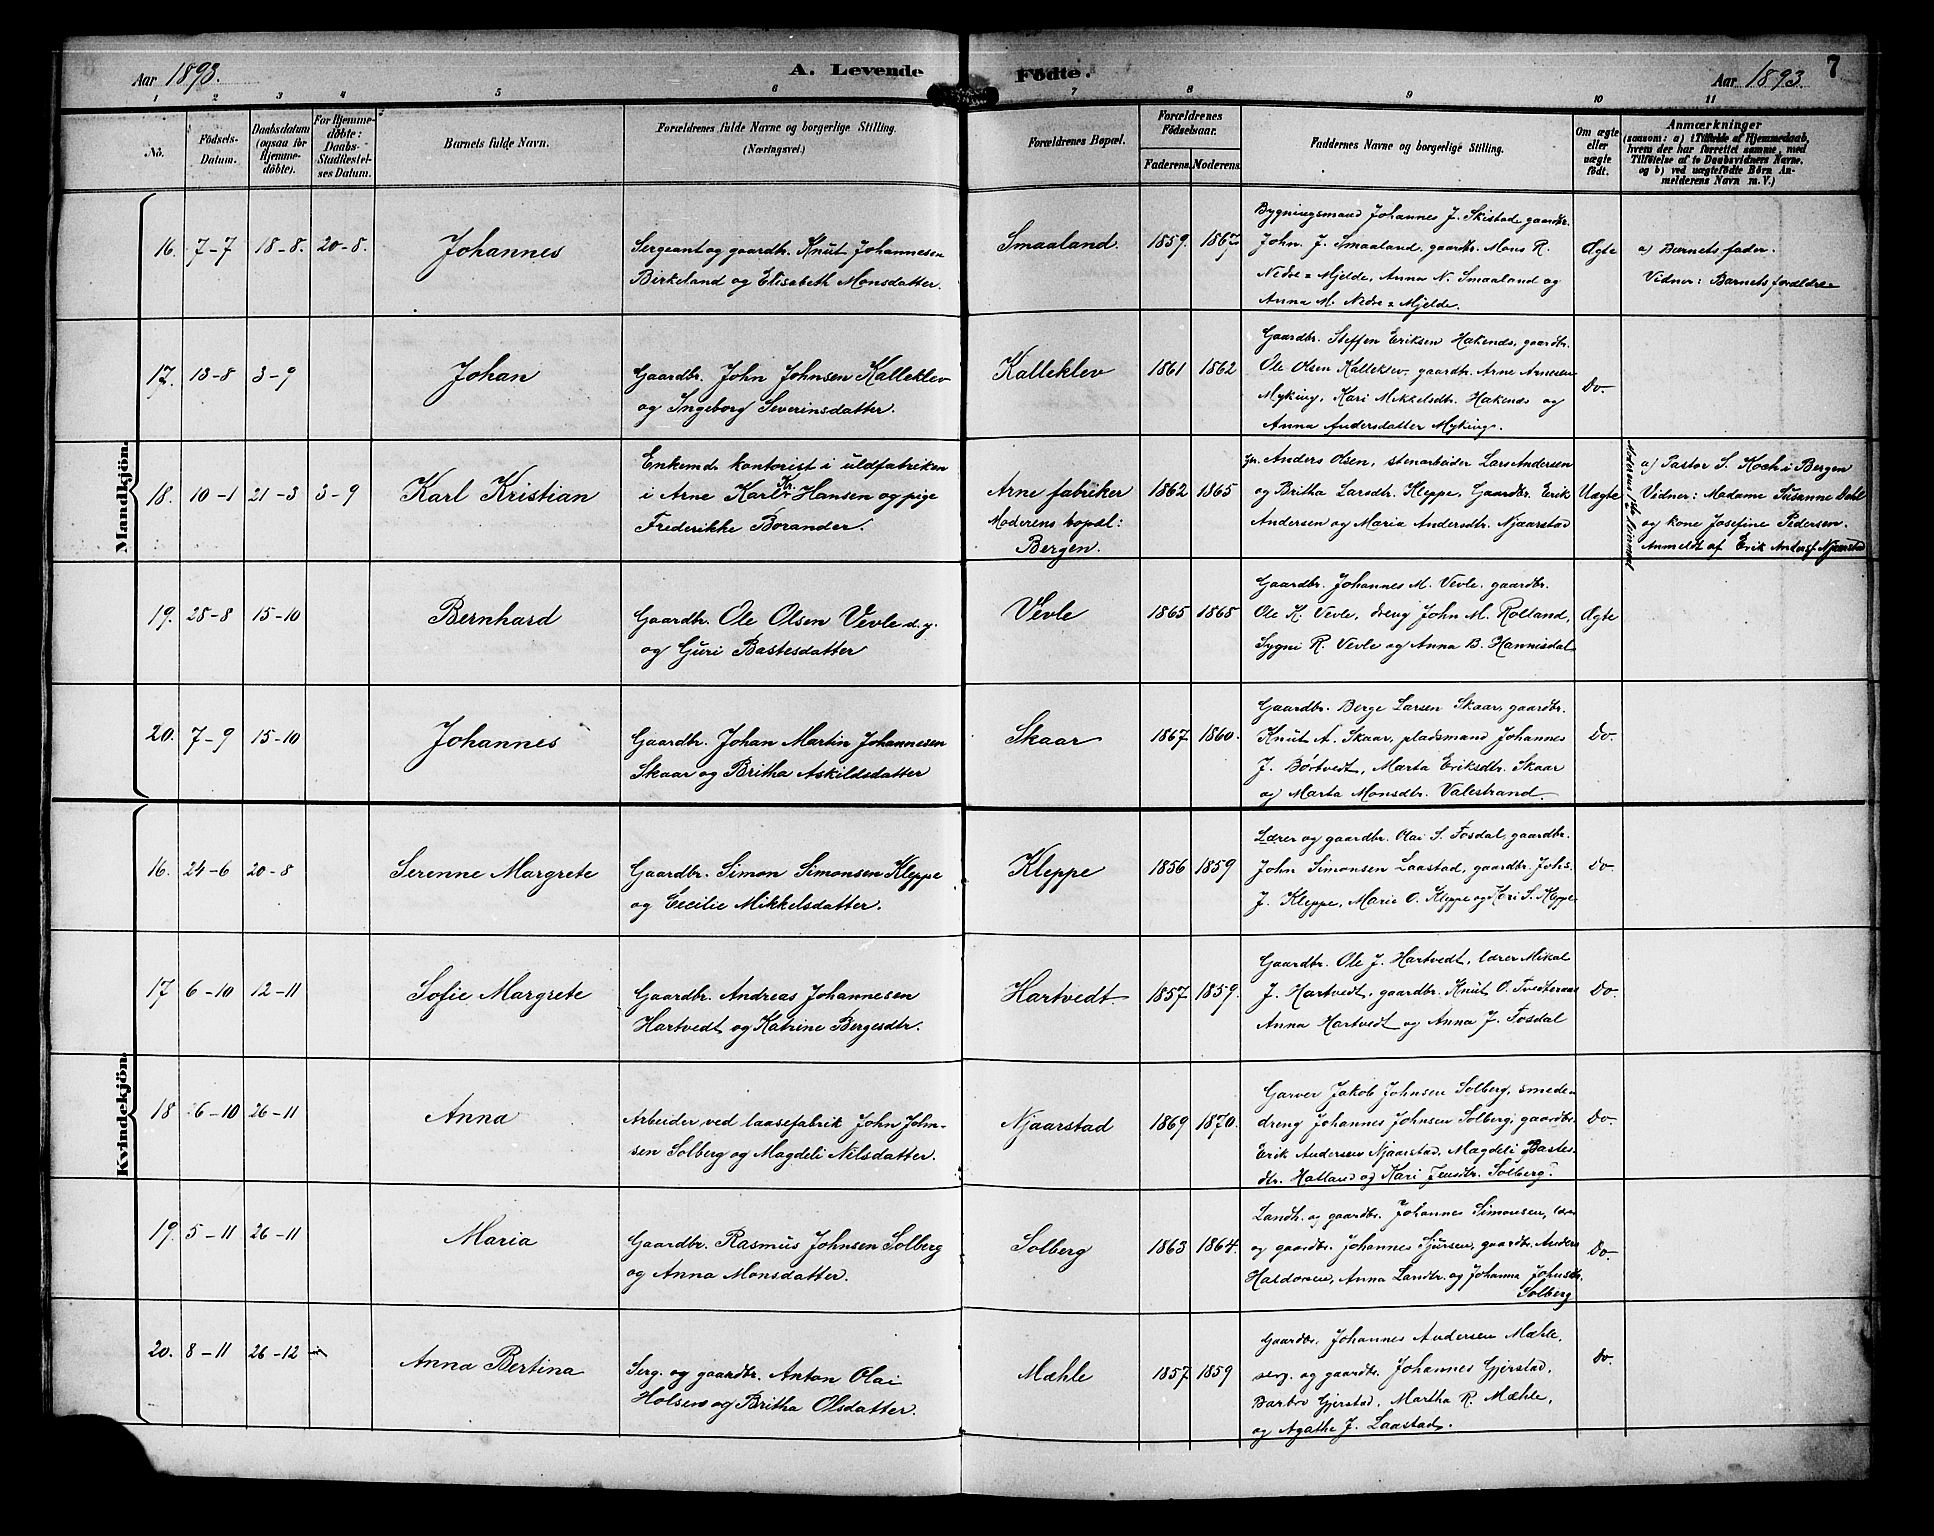 Aar 1893.
A. Levende Fødte.
Aar 1893.
7
1 2 3 4 5 6 7 8 9 10 11
No.
Fødsels-
Datum.
Daabsdatum
(ogsaa for
Hjemme-
døbte).
For Hjemme-
døbte:
Daabs-
Stadfæstel-
ses Datum.
Barnets fulde Navn.
Forældrenes fulde Navne og borgerlige Stilling.
(Næringsvei.)
Forældrenes Bopæl.
Forældrenes
Fødselsaar.
Faderens. Moderens.
Faddernes Navne og borgerlige Stilling.
Om ægte
eller
uægte
født.
Anmærkninger
(saasom: a) i Tilfælde af Hjemmedaab,
hvem der har forrettet samme, med
Tilføielse af to Daabsvidners Navne.
og b) ved uægtefødte Børn An-
melderens Navn m. V.)
Mandkjön.
16. 7-7 18-8. 20-8. Johannes
Sergeant og gaardbr. Knut Johannesen
Birkeland og Elisabeth Monsdatter.
Smaaland. 1859. 1867
Bygningsmand Johannes J. Skistad, gaardbr.
John. J. Smaaland, gaardbr. Mons R.
Nedre-Mjelde, Anna N. Smaaland og
Anna M. Nedre-Mjelde.
Ægte
a) Barnets fader.
Vidner: Barnets forældre
17. 13-8 3-9 Johan
Gaardbr. John Johnsen Kalleklev
og Ingeborg Severinsdatter.
Kalleklev 1861 1862
Gaardbr. Steffen Eriksen Hakenes, gaardbr.
Ole Olsen Kalleklev, gaardbr. Arne Arnesen
Myking, Kari Mikkelsdtr. Hakenes og
Anna Andersdatter Myking.
Do.
18. 10-1 21-3 3-9 Karl Kristian
Enkemd. kontorist i uldfabriken
i Arne Karl Kr. Hansen og pige
Frederikke Borander.
Arne fabriker
Moderens bopæl:
Bergen.
1862 1865
Anders Olsen, stenarbeider Lars Andersen
og Britha Larsdtr. Kleppe, Gaardbr. Erik
Andersen og Maria Andersdtr. Njaarstad
Uægte
a) Pastor S. Koch i Bergen
Vidner: Madame Susanne Dahl
og kone Josefine Pedersen.
Anmeldt af Erik Anders. Njaarstad
19. 28-8 15-10 Bernhard
Gaardbr. Ole Olsen Vevle d. y.
og Guri Bastesdatter
Vevle 1865 1868
Gaardbr. Johannes M. Vevle, gaardbr.
Ole K. Vevle, dreng John M. Rolland,
Sygni R. Vevle og Anna B. Hannisdal
Ægte
20. 7-9 15-10 Johannes
Gaardbr. Johan Martin Johannesen
Skaar og Britha Askildsdatter
Skaar 1867 1860.
Gaardbr. Berge Larsen Skaar, gaardbr.
Knut A. Skaar, pladsmand Johannes
J. Børtvedt, Marta Eriksdtr. Skaar
og Marta Monsdtr. Valestrand.
Do.
Kvindekjön.
16. 24-6 20-8 Serenne Margrete
Gaardbr. Simon Simonsen Kleppe
og Cecilie Mikkelsdatter.
Kleppe 1856 1859
Lærer og gaardbr. Olai S. Fosdal, gaardbr.
John Simonsen Laastad, gaardbr. Johs.
J. Kleppe, Marie O. Kleppe og Kari S. Kleppe
Do.
17 6-10 12-11 Sofie Margrete
Gaardbr. Andreas Johannesen
Hartvedt og Katrine Bergesdtr.
Hartvedt 1857 1859.
Gaardbr. Ole J. Hartvedt, lærer Mikal
J. Hartvedt, gaardbr. Knut O. Tvedteraas
Anna Hartvedt og Anna J. Fosdal
Do.
18 26-10 26-11 Anna
Arbeider ved laasefabrik John John-
sen Solberg og Magdeli Nilsdatter.
Njaarstad 1869 1870.
Garver Jakob Johnsen Solberg, smede-
dreng Johannes Johnsen Solberg, gaardbr.
Erik Andersen Njaarstad, Magdeli Bastes-
dtr. Hatland og Kari Jensdtr. Solberg.
Do.
19. 5-11 26-11 Maria
Gaardbr. Rasmus Johnsen Solberg
og Anna Monsdatter.
Solberg 1863 1864.
Landh. og gaardbr. Johannes Simonsen,
og gaardbr. Johannes Sjursen, gaardbr. Anders
Haldorsen, Anna Landbr. og Johanna Johnsdtr.
Solberg
Do.
20. 8-11 26-12 Anna Bertina
Serg. og gaardbr. Anton Olai
Holsen og Britha Olsdatter.
Mæhle 1857 1859
Gaardbr. Johannes Andersen Mæhle,
serg. og gaardbr. Johannes Gjerstad,
Barbro Gjerstad, Martha R. Mæhle,
og Agathe J. Laastad.
Do.